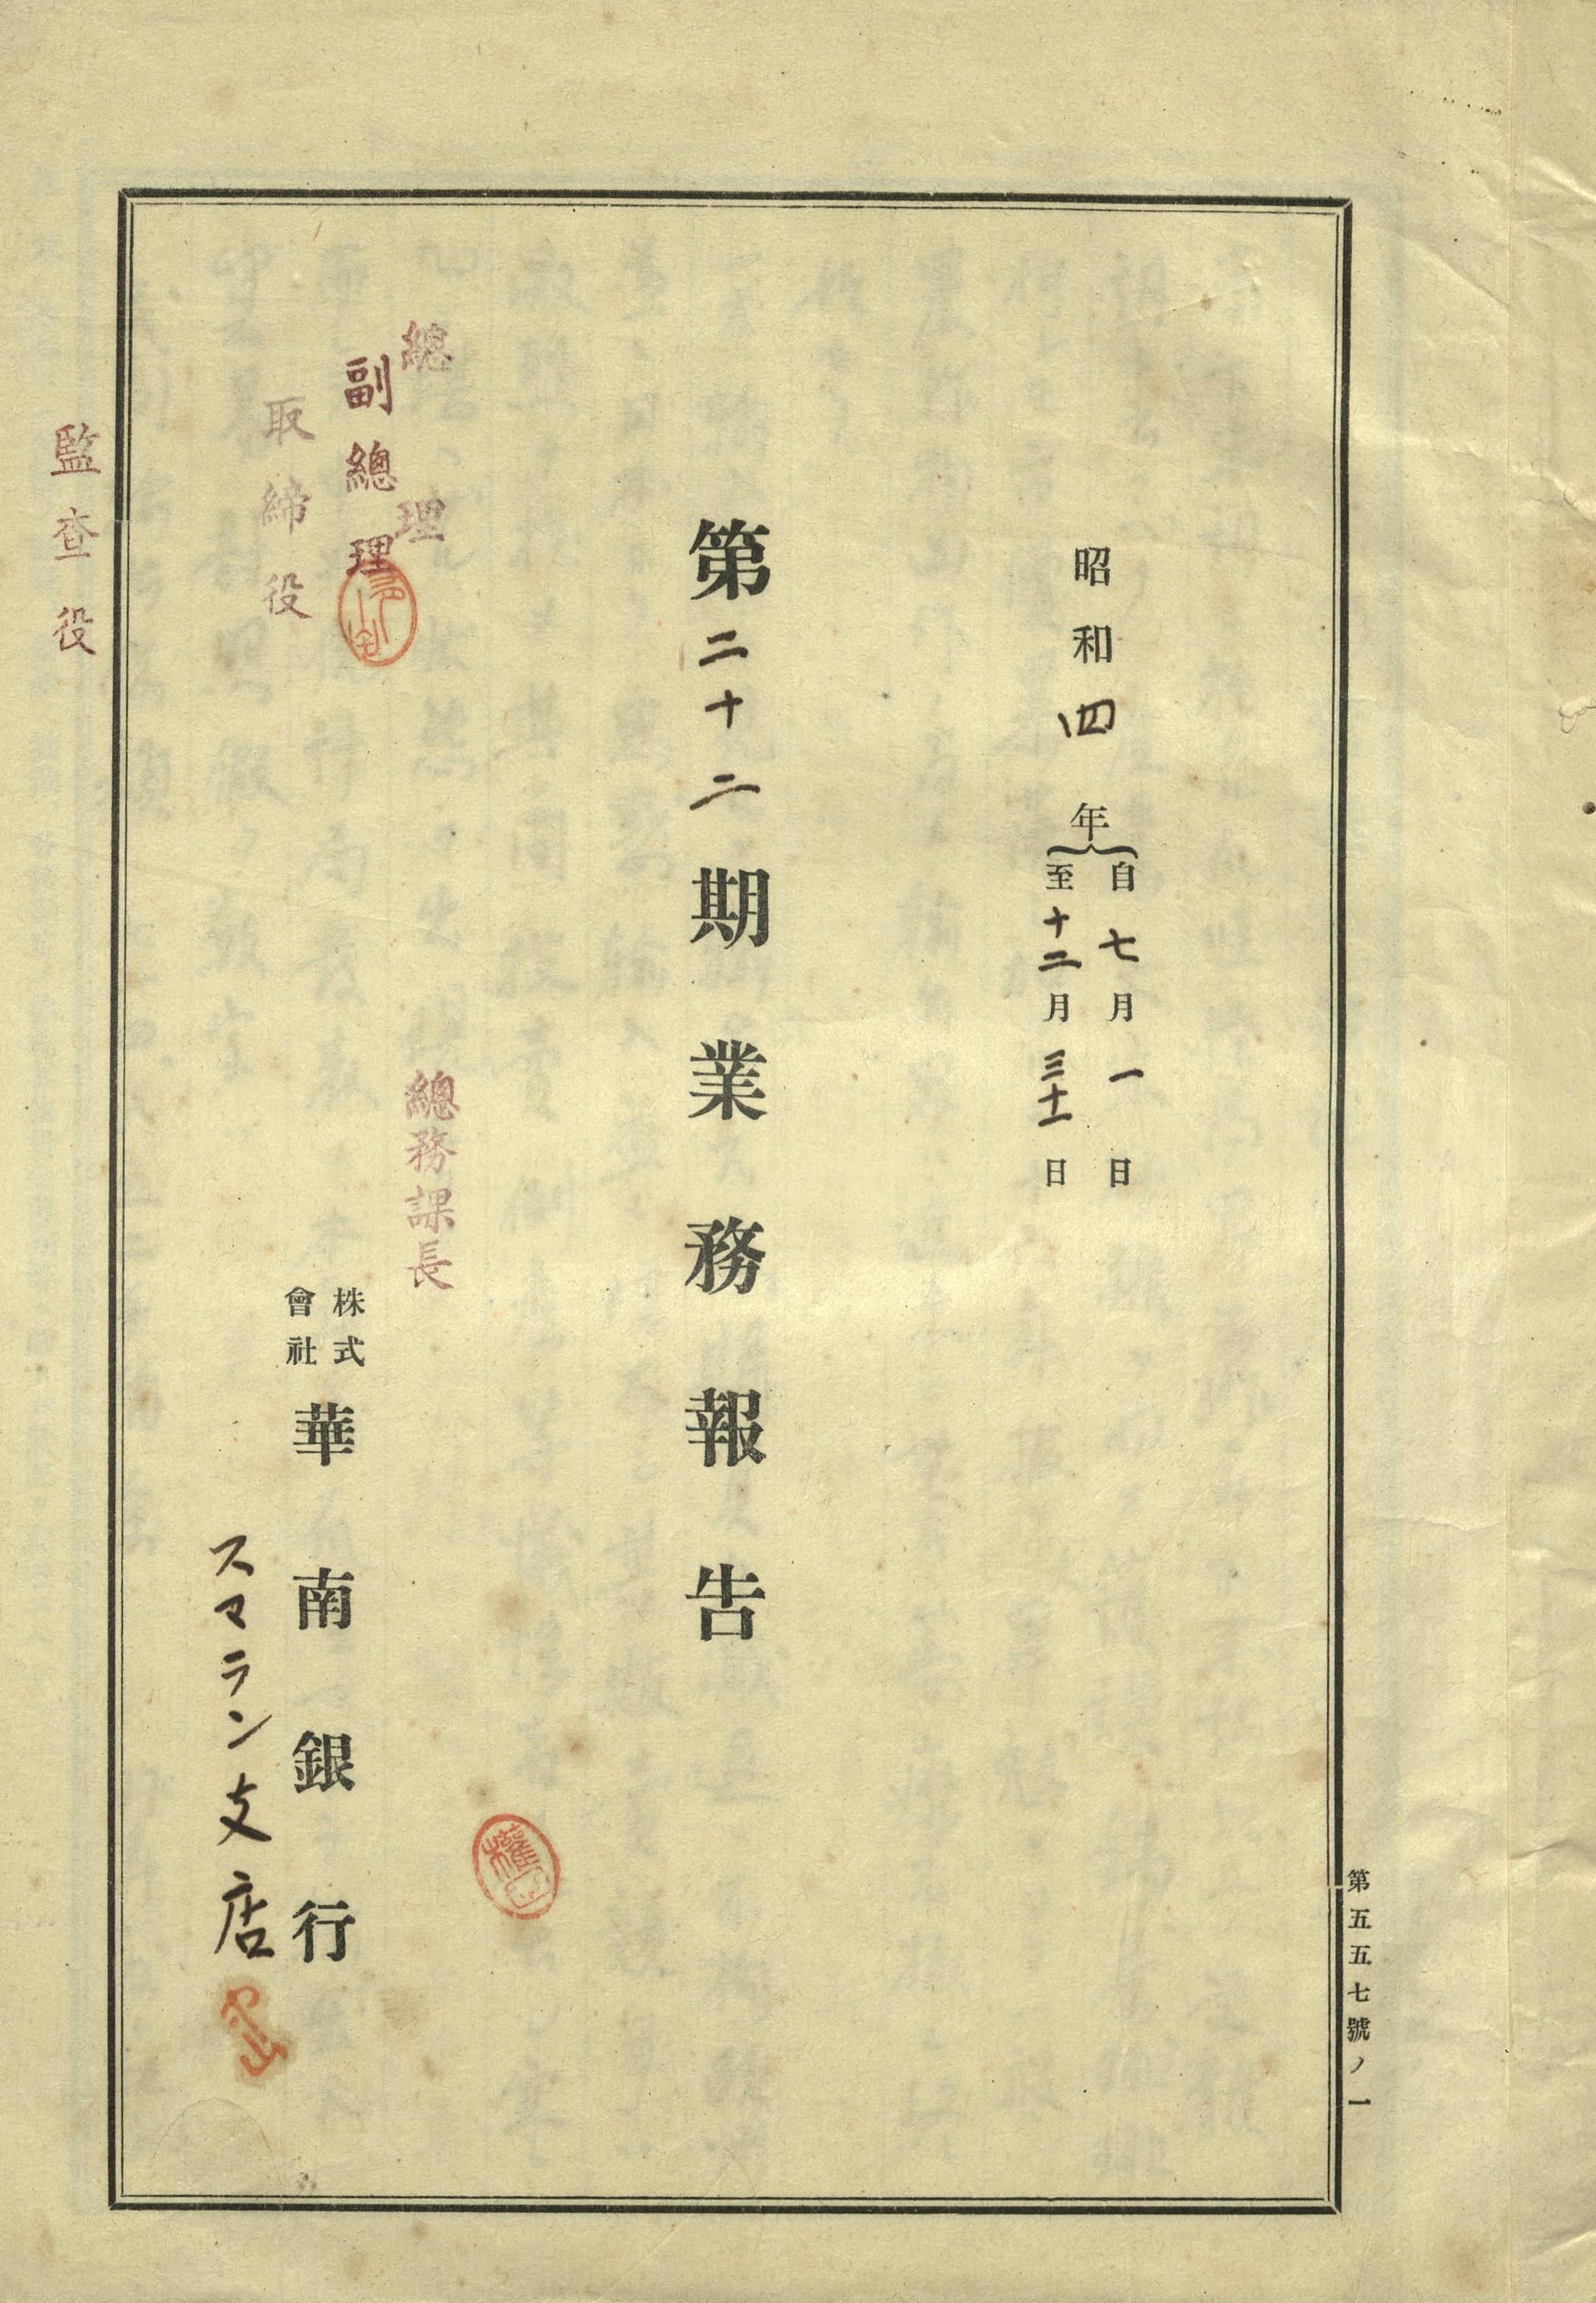 第五五七號ノ一
昭和四年
自七月一日
至十二月三十一日
第二十二期業務報告
總務課長
總理
副總理
取締役
監查役
株式
會社
華南銀行
スマラン支店